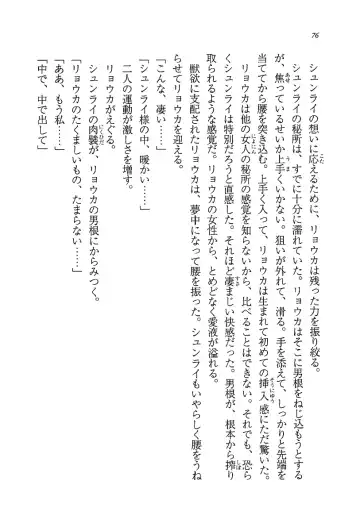 76
シュンライの想いに応えるために、リョウカは残った力を振り絞る。
シュンライの秘所は、すでに十分に濡れていた。リョウカはそこに男根をねじ込もうとする
が、焦っているせいか上手くいかない。狙いが外れて、滑る。手を添えて、しっかりと先端を
当ててから腰を突き込む。上手く入って、リョウカは生まれて初めての挿入感にただ驚いた。
リョウカは他の女人の秘所の感覚を知らないから、比べることはできない。それでも、恐ら
くシュンライは特別だろうと直感した。それほど凄まじい快感だった。男根が、根本から搾り
取られるような感覚だ。リョウカの女性から、とめどなく愛液が溢れる。
獣欲に支配されたリョウカは、夢中になって腰を振った。シュンライもいやらしく腰をうね
らせてリョウカを迎える。
「こんな、凄い……」
「シュンライ様の中、暖かい……」
二人の運動が激しさを増す。
リョウカがえぐる。
シュンライの肉襞が、リョウカの男根にからみつく。
「リョウカのたくましいもの、たまらない……」
「ああ、もう私……」
「中で、中で出して」